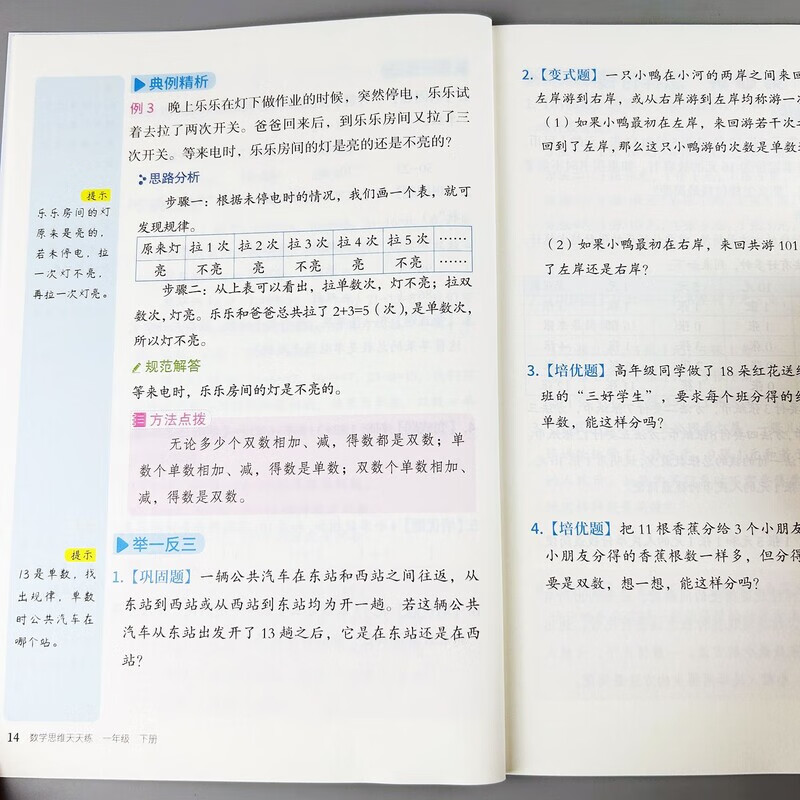 典例精析
例 3 晚上乐乐在灯下做作业的时候，突然停电，乐乐试
着去拉了两次开关。爸爸回来后，到乐乐房间又拉了三
次开关。等来电时，乐乐房间的灯是亮的还是不亮的？
思路分析
提示
乐乐房间的灯
原来是亮的，
若未停电，拉
一次灯不亮，
再拉一次灯亮。
步骤一：根据未停电时的情况，我们画一个表，就可
发现规律。
原来灯 拉 1 次 拉 2 次 拉 3 次 拉 4 次 拉 5 次 ……
亮 不亮 亮 不亮 亮 不亮 ……
步骤二：从上表可以看出，拉单数次，灯不亮；拉双
数次，灯亮。乐乐和爸爸总共拉了 2+3=5（次），是单数次，
所以灯不亮。
规范解答
等来电时，乐乐房间的灯是不亮的。
方法点拨
无论多少个双数相加、减，得数都是双数；单
数个单数相加、减，得数是单数；双数个单数相加、
减，得数是双数。
举一反三
提示
13 是单数，找
出规律，单数
时公共汽车在
哪个站。
1.【巩固题】一辆公共汽车在东站和西站之间往返，从
东站到西站或从西站到东站均为开一趟。若这辆公共
汽车从东站出发开了 13 趟之后，它是在东站还是在西
站？
14 数学思维天天练 一年级 下册
2.【变式题】一只小鸭在小河的两岸之间来回
左岸游到右岸，或从右岸游到左岸均称游一
（1）如果小鸭最初在左岸，来回游若干次
回到了左岸，那么这只小鸭游的次数是单数
（2）如果小鸭最初在右岸，来回共游 101
了左岸还是右岸？
3.【培优题】高年级同学做了 18 朵红花送
班的“三好学生”，要求每个班分得的
单数，能这样分吗？
4.【培优题】把 11 根香蕉分给 3 个小朋
小朋友分得的香蕉根数一样多，但分
要是双数，想一想，能这样分吗？